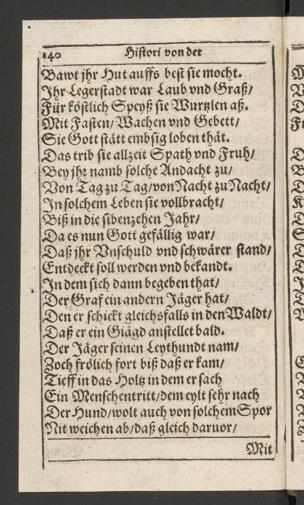 140 Histori von der
Bawt jhr Hut auffs best sie mocht.
Jhr Legerstadt war Laub vnd Graß/
Für köstlich Speyß sie Wurtzlen aß.
Mit Fasten/Wachen vnd Gebett/
Sie Gott stätt embsig loben thät.
Das trib sie allzeit Spath vnd Fruh/
Bey jhr namb solche Andacht zu/
Von Tag zu Tag/von Nacht zu Nacht/
In solchem Leben sie vollbracht/
Biß in die sibenzehen Jahr/
Da es nun Gott gefällig war/
Daß jhr Vnschuld vnd schwärer stand/
Entdeckt soll werden vnd bekandt.
In dem sich dann begeben that/
Der Graf ein andern Jäger hat/
Den er schickt gleichsfalls in den Waldt/
Daß er ein Giägd anstellet bald.
Der Jäger seinen Leythundt nam/
Zoch frölich fort biß daß er kam/
Tieff in das Holtz in dem er sach
Ein Menschentritt/dem eylt sehr nach
Der Hund/wolt auch von solchem Spor
Nit weichen ab/daß gleich daruor/
Mit